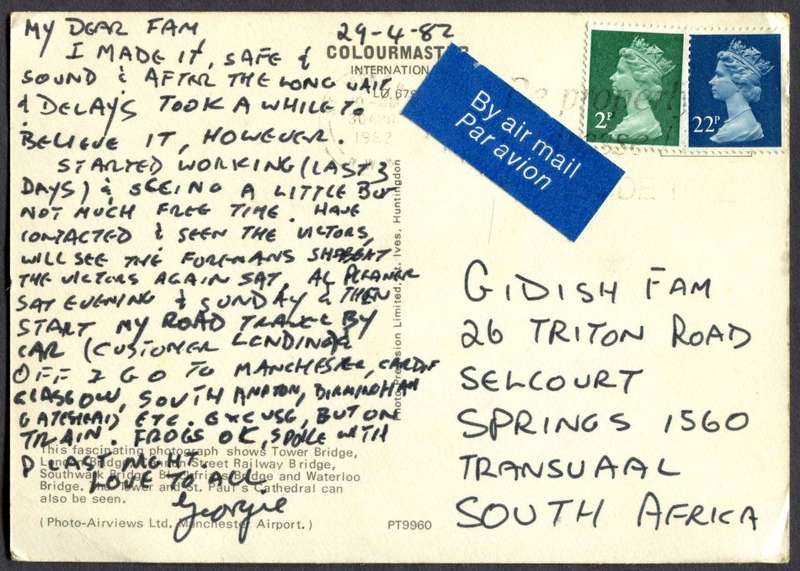 MY DEAR FAM 29-4-82
I MADE IT, SAFE &
SOUND & AFTER THE LONG WAIT
& DELAYS TOOK A WHILE TO
BELIEVE IT, HOWEVER.
STARTED WORKING (LAST 3
DAYS) & SEEING A LITTLE BUT
NOT MUCH FREE TIME. HAVE
CONTACTED & SEEN THE VICTORS,
WILL SEE THE FOREMANS
THE VICTORS AGAIN SAT, AL
SAT EVENING & SUNDAY & THEN
START MY ROAD TRAVEL BY
CAR (CUSTOMER LENDING)
OFF I GO TO MANCHESTER, CARDIF
GLASGOW, SOUTHAMPTON, BIRMINGHAM
GATESHEAD ETC. EXCUSE, BUT ON
TRAIN. FROGS OK, SPOKE WITH
D LAST NIGHT.
LOVE TO ALL
Georgie
COLOURMASTER
INTERNATIONAL
By air mail
Par avion
2P
22P
GIDISH FAM
26 TRITON ROAD
SELCOURT
SPRINGS 1560
TRANSVAAL
SOUTH AFRICA
Photo Precision Limited, St. Ives, Huntingdon
This fascinating photograph shows Tower Bridge,
London Bridge, Cannon Street Railway Bridge,
Southwark Bridge, Blackfriars Bridge and Waterloo
Bridge. The Tower and St. Paul's Cathedral can
also be seen.
(Photo-Airviews Ltd. Manchester Airport.)
PT9960